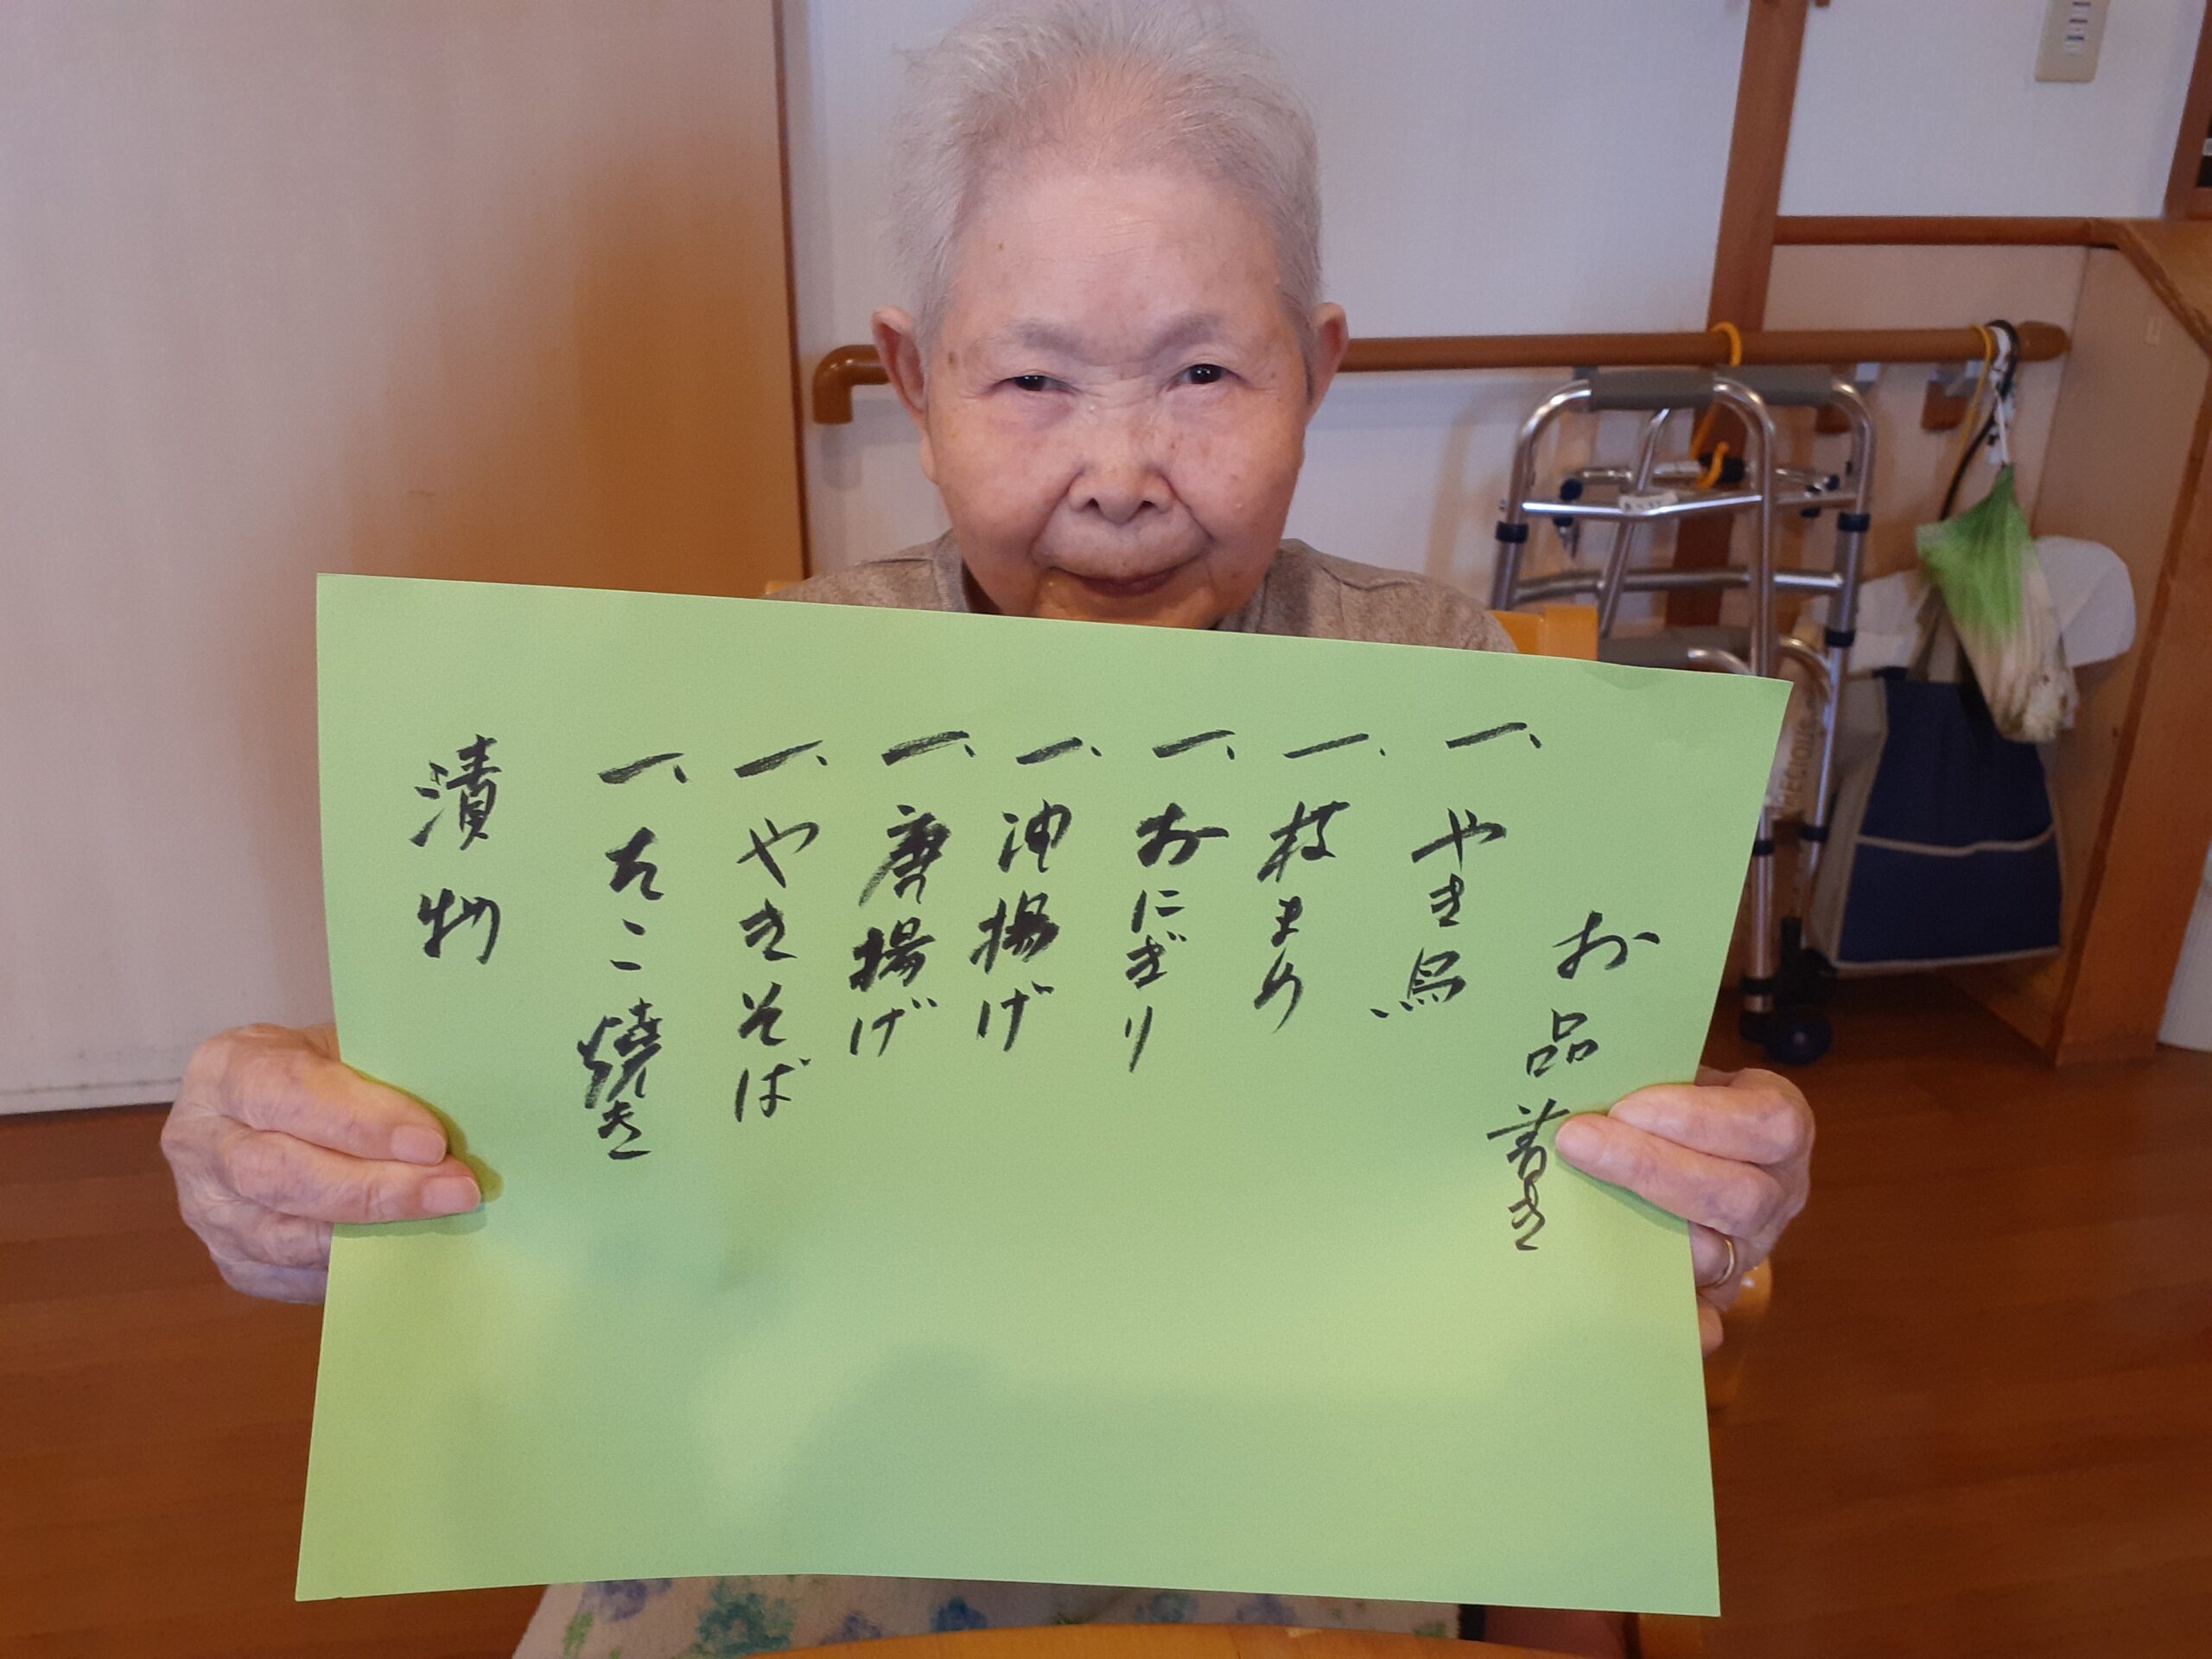 お品書き
一、やき鳥
一、枝まめ
一、おにぎり
一、油揚げ
一、唐揚げ
一、やきそば
一、たこ焼き
漬物